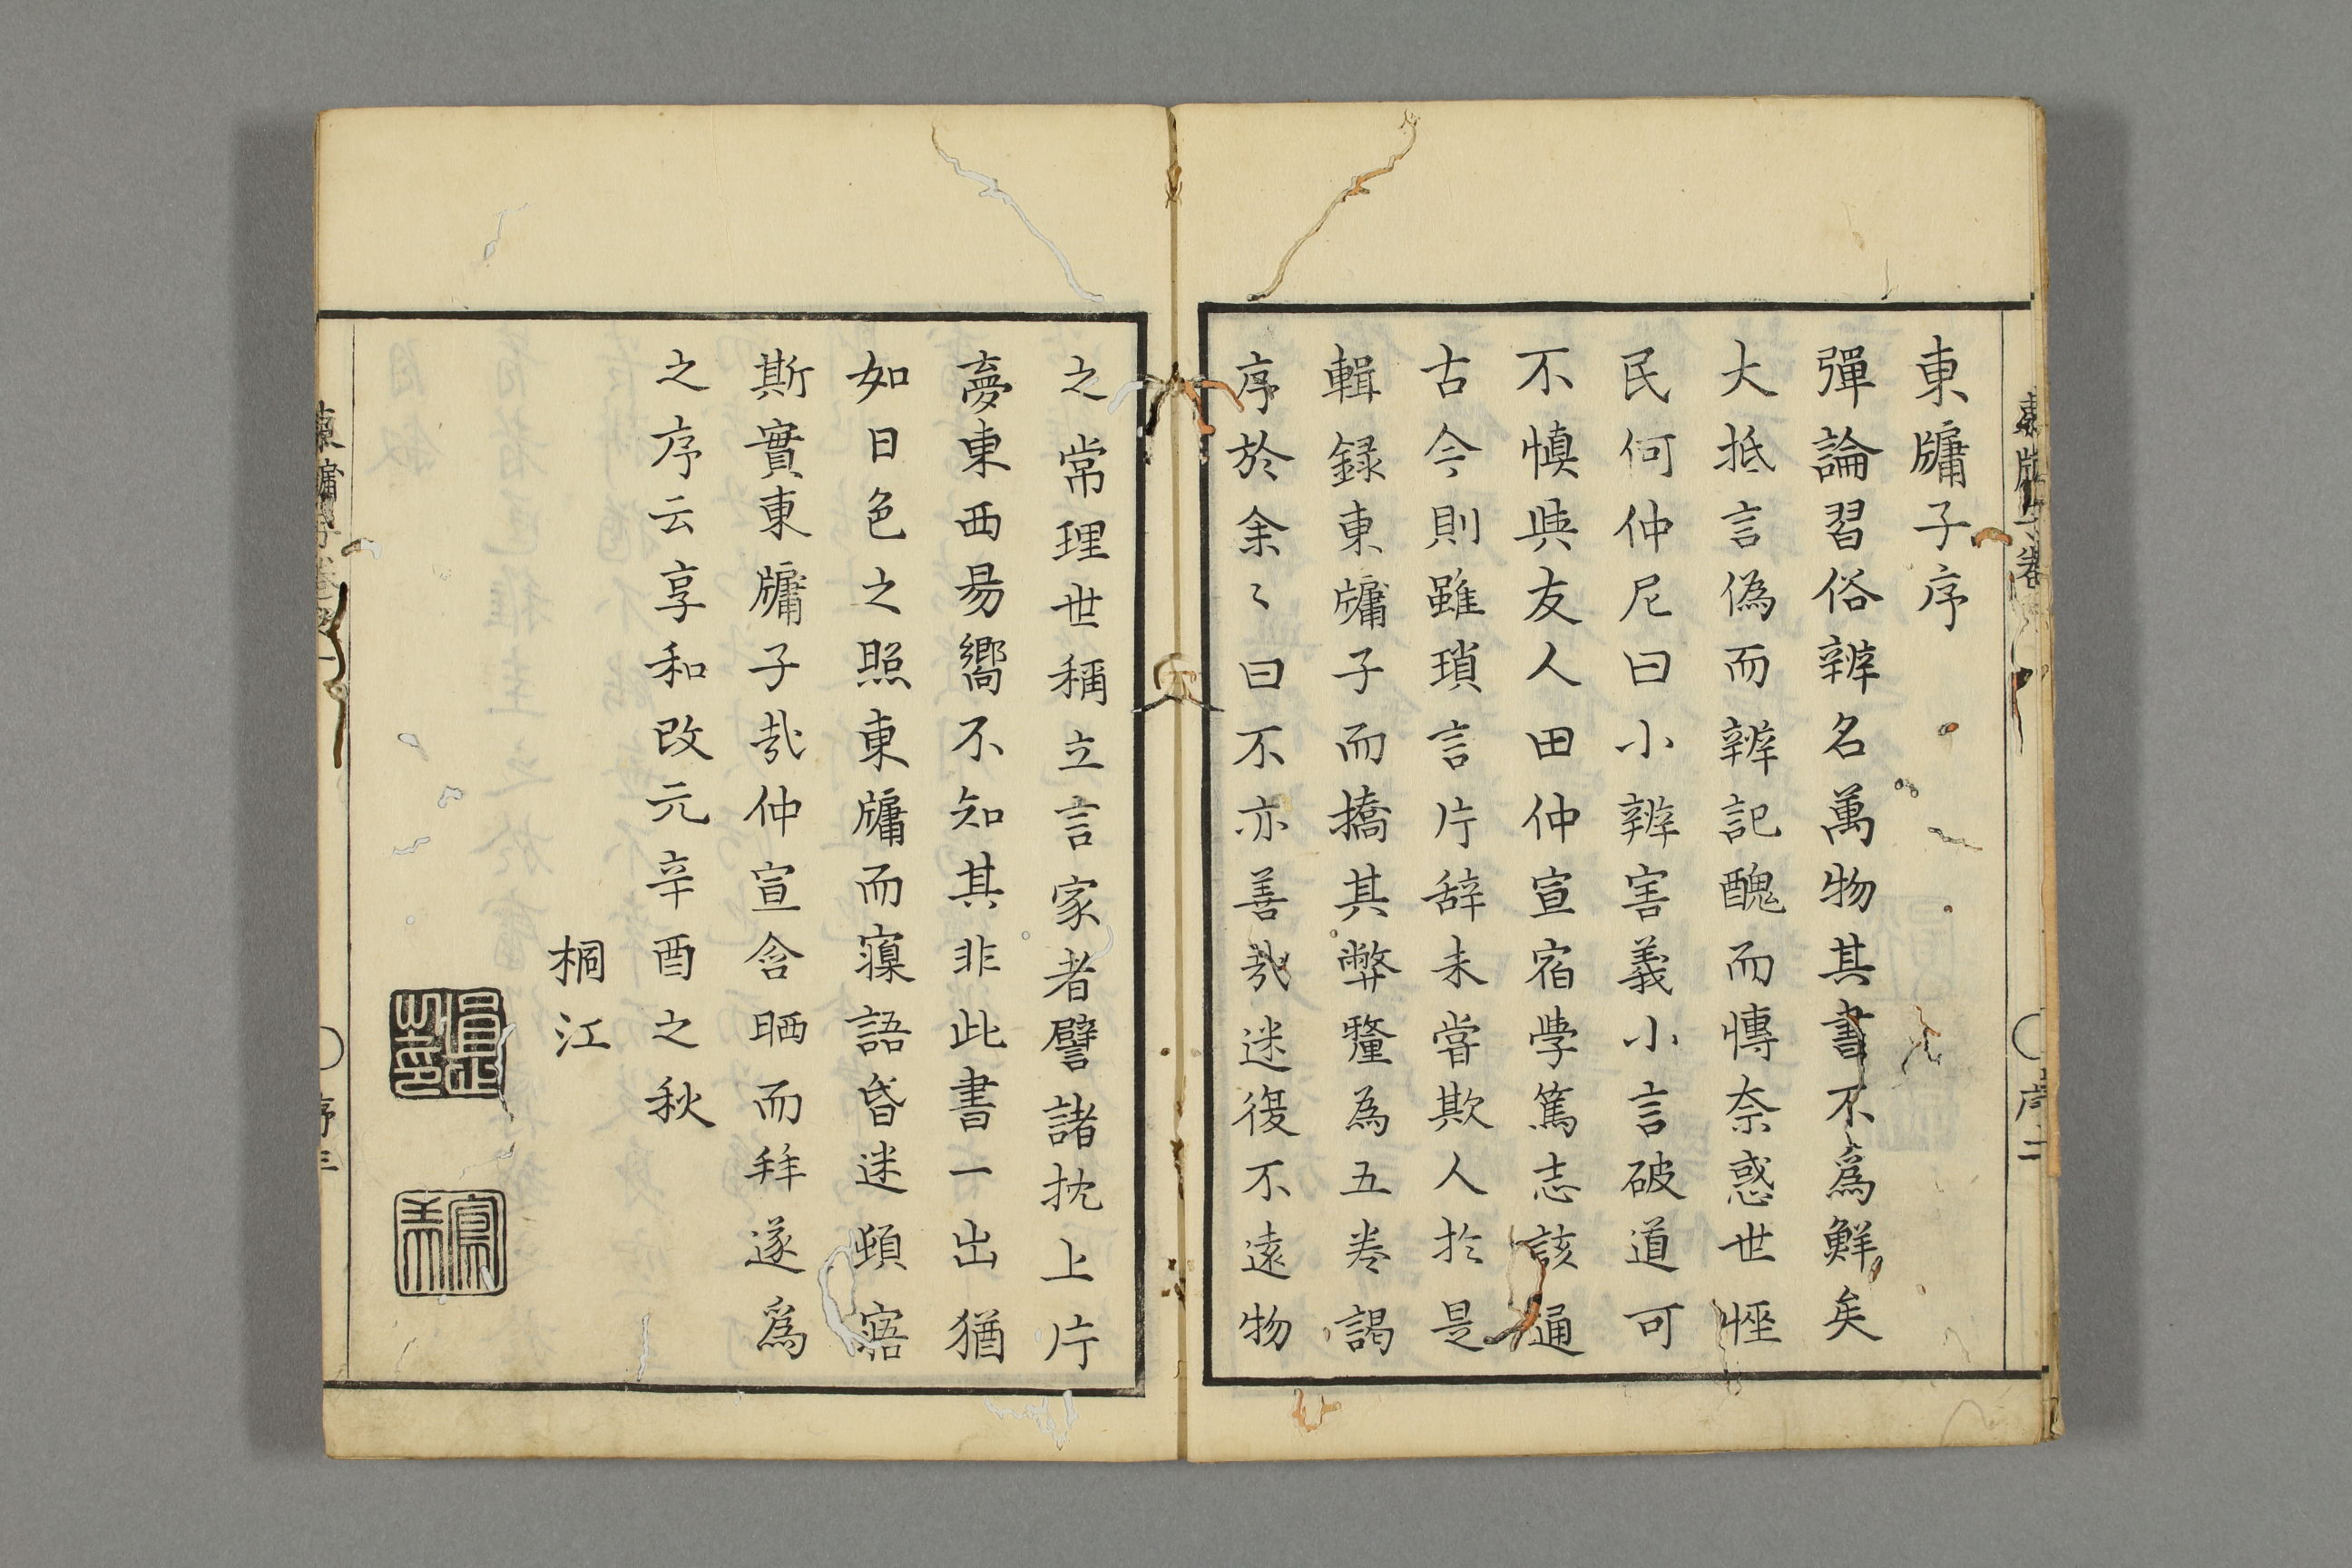 東牗子序
彈論習俗辨名萬物其書不爲鮮矣
大抵言偽而辨記醜而愽奈惑世恠
民何仲尼曰小辨害義小言破道可
不慎與友人田仲宣宿學篤志該通
古今則雖瑣言片辞未甞欺人於是
輯録東牗子而撟其弊釐為五卷謁
序於余〻曰不亦善哉迷復不遠物
之常理世稱立言家者譬諸枕上片
夢東西易嚮不知其非此書一出猶
如日色之照東牗而寱語昏迷頓寤
斯實東牗子哉仲宣含哂而拜遂爲
之序云享和改元辛酉之秋
桐江
序二
序三